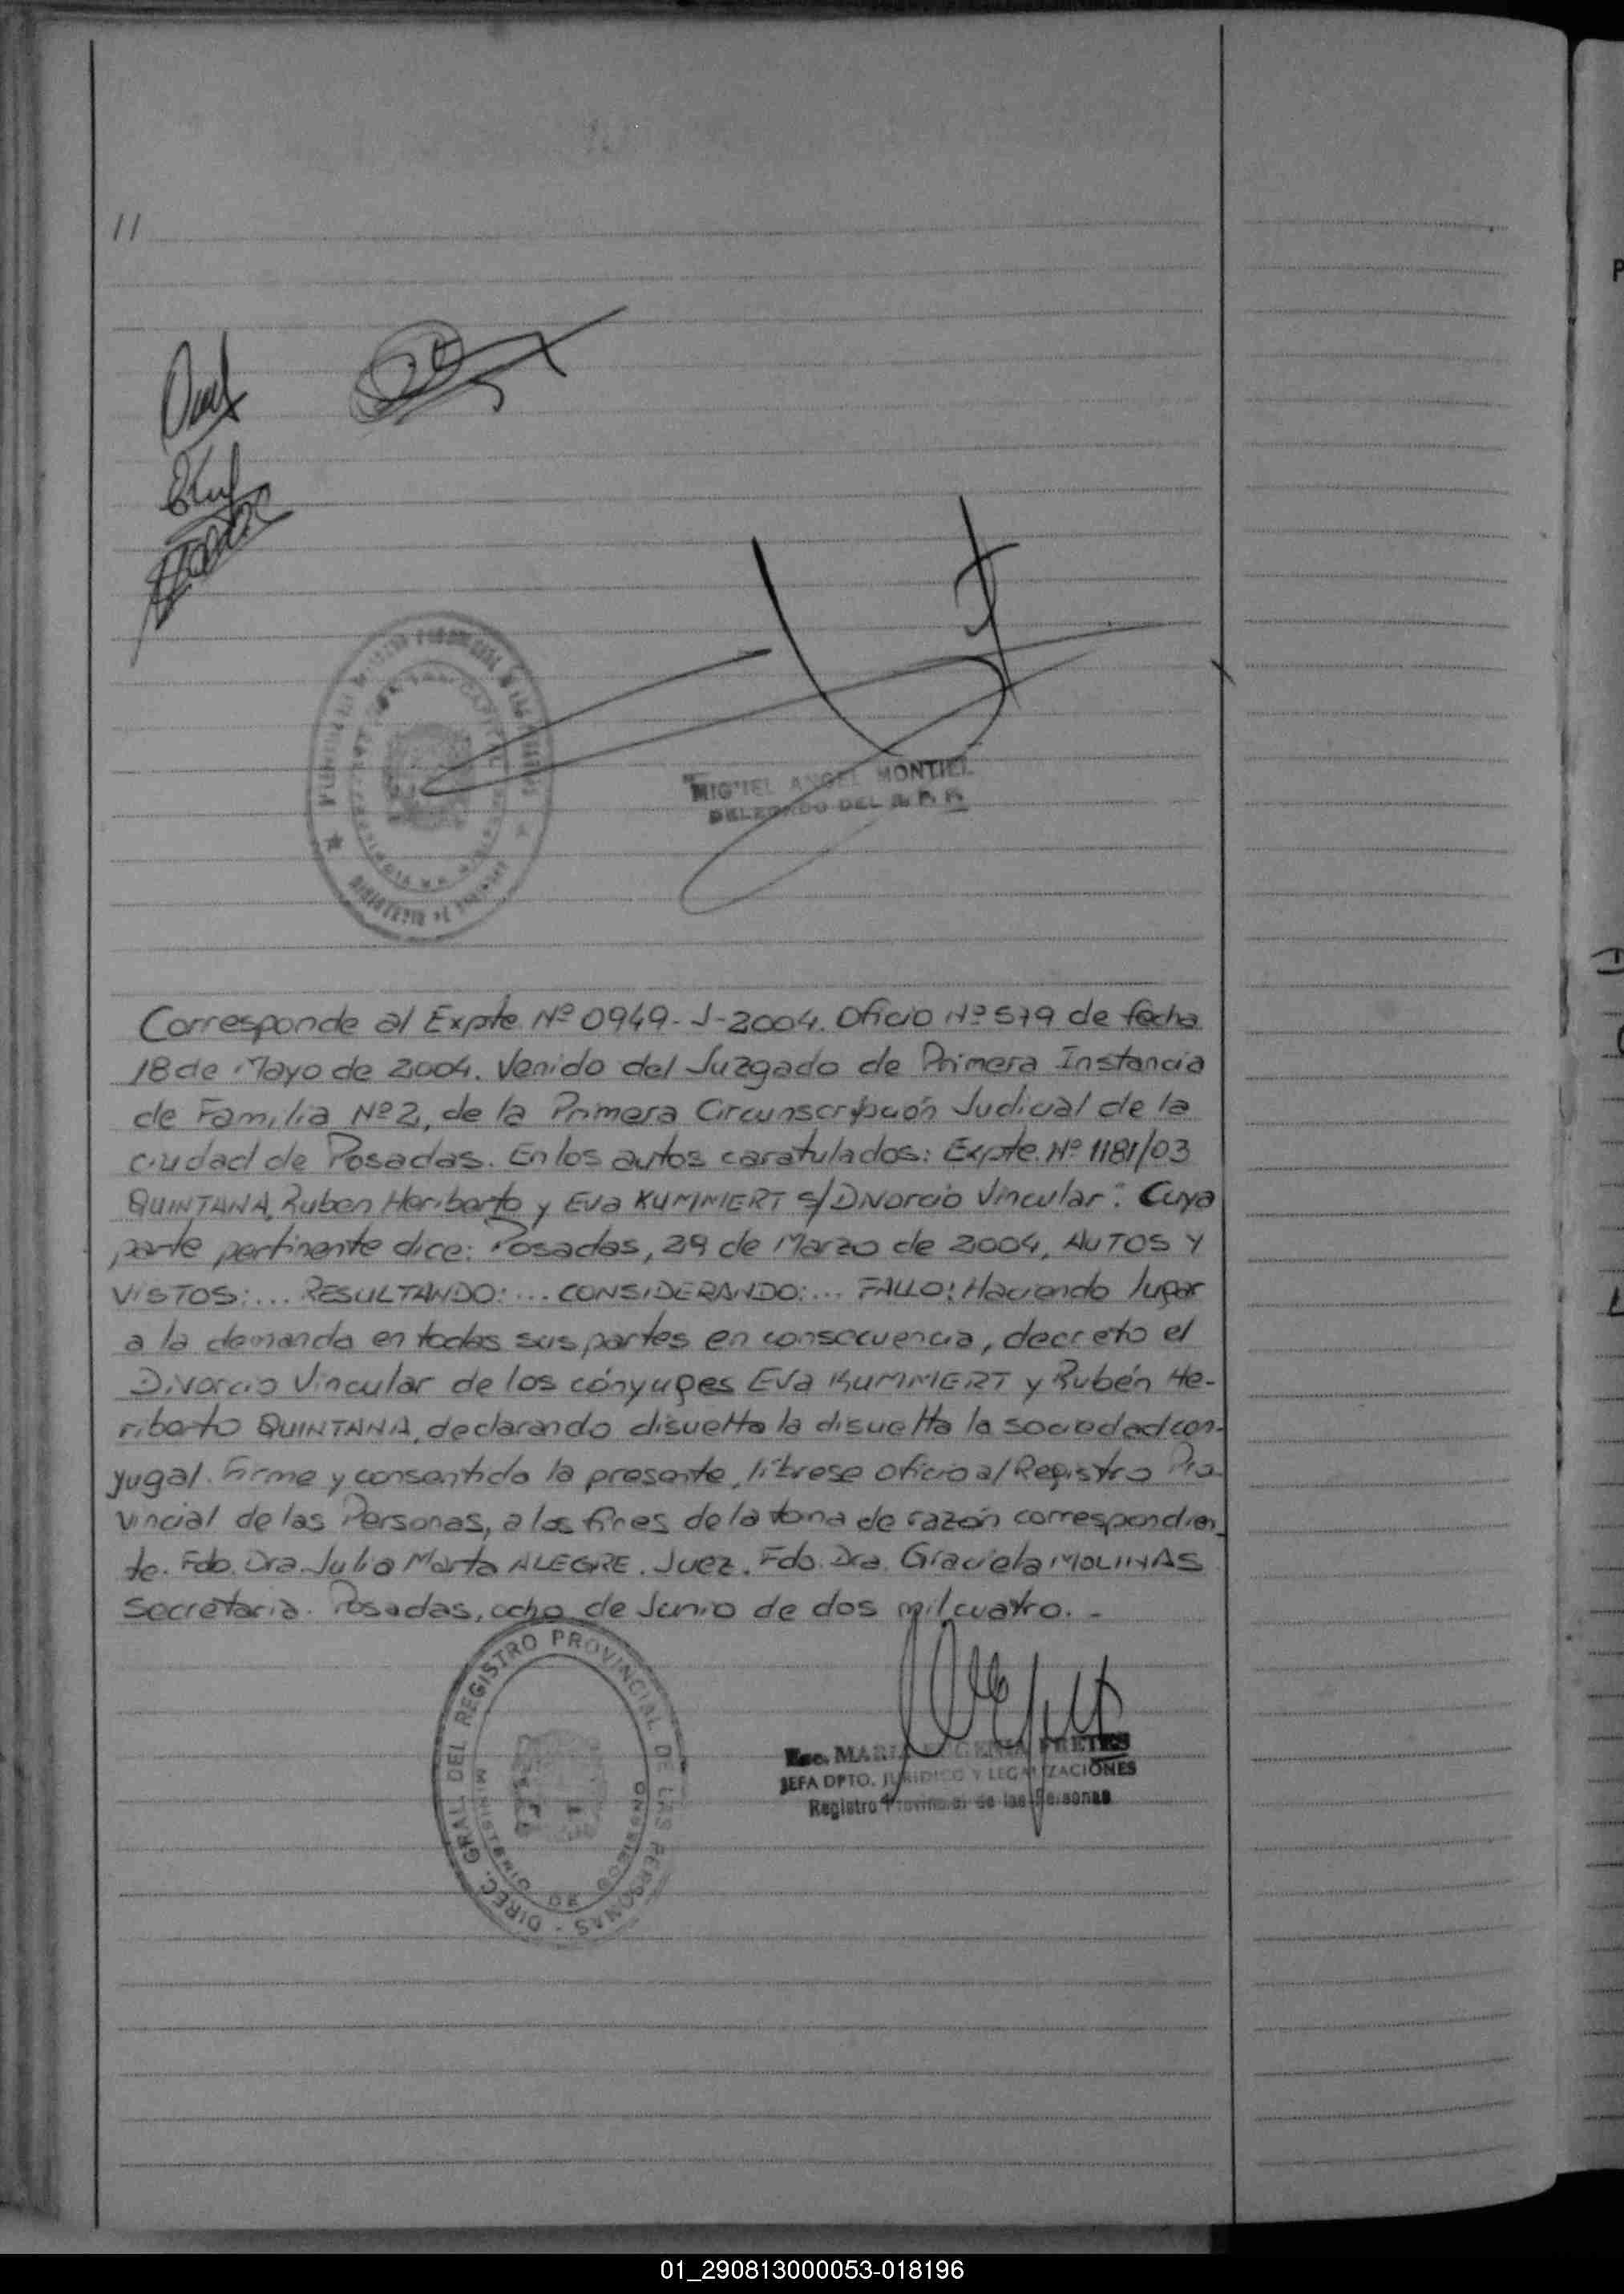 11
MIGUEL ANGEL MONTIEL
DELEGADO DEL R. P. P.
Corresponde al Expte Nº 0949-J-2004. Oficio Nº 579 de fecha
18 de Mayo de 2004. Venido del Juzgado de Primera Instancia
de Familia Nº 2, de la Primera Circunscripción Judicial de la
ciudad de Posadas. En los autos caratulados: Expte. Nº 1181/03
QUINTANA, Ruben Heriberto y Eva KUMMERT s/Divorcio Vincular". Cuya
parte pertinente dice: Posadas, 29 de Marzo de 2004, AUTOS Y
VISTOS:... RESULTANDO:... CONSIDERANDO:... FALLO: Haciendo lugar
a la demanda en todas sus partes en consecuencia, decreto el
Divorcio Vincular de los cónyuges Eva KUMMERT y Rubén He-
riberto QUINTANA, declarando disuelta la disuelta la sociedad con-
yugal. Firme y consentida la presente, líbrese oficio al Registro Pro-
vincial de las Personas, a los fines de la toma de razón correspondien_
te. Fdo. Dra. Julia Marta ALEGRE. Juez. Fdo. Dra. Graciela MOLINAS
Secretaria. Posadas, ocho de Junio de dos mil cuatro. -
DIREC. GRAL DEL REGISTRO PROVINCIAL DE LAS PERSONAS -
MINISTERIO DE GOBIERNO
Esc. MARIA EUGENIA PRETES
JEFA DPTO. JURIDICO Y LEGALIZACIONES
Registro Provincial de las Personas
01_290813000053-018196